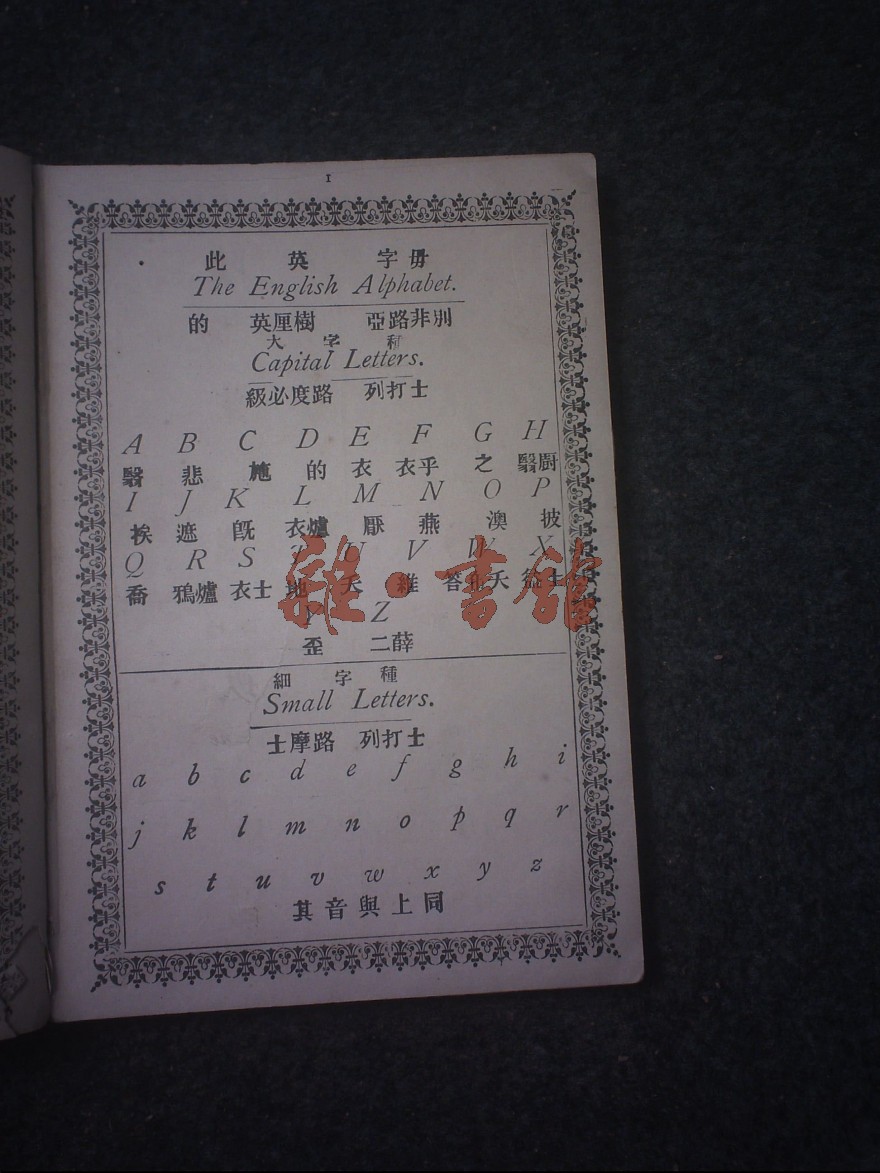 1
此 英 字 毋
The English Alphabet.
的 英厘樹 亞路非別
大 字 種
Capital Letters.
級必度路 列打士
A B C D E F G H
醫 悲 施 的 衣 衣乎 之 醫厨
I J K L M N O P
挨 遮 旣 衣爐 厭 燕 澳 披
Q R S T U V W X
喬 鴉爐 衣士 地 夭 維
Y Z
歪 二薛
細 字 種
Small Letters.
士摩路 列打士
a b c d e f g h i
j k l m n o p q r
s t u v w x y z
其音與上同
雜·書館